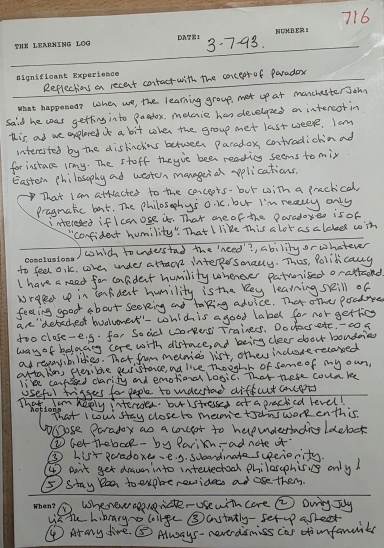 716
THE LEARNING LOG DATE: 3-7-93. NUMBER:
Significant Experience
Reflections on recent contact with the concept of Paradox
What happened? When we, the learning group, met up at manchester John
said he was getting into paradox. melanie has developed an interest in
this, and we explored it a bit when the group met last week. I am
interested by the distinctions between Paradox, contradiction and
for instance irony. The stuff they've been reading seems to mix
Eastern philosophy and western managerial applications.
→ That I am attracted to the concepts - but with a practical
pragmatic bent. The philosophy's O.K. but I'm really only
interested if I can use it. That one of the paradoxes is of
"confident humility". That I like this a lot as a label with
Conclusions which to understand the 'need'?, ability or whatever
to feel O.K. when under attack interpersonally. Thus, Politically
I have a need for confident humility whenever patronised or attacked.
Wrapped up in confident humility is the key learning skill of
feeling good about seeking and taking advice. That other paradoxes
are "detached involvement" - which is a good label for not getting
too close - e.g. for Social Workers, Trainers, Doctors etc. - as a
way of balancing care with distance, and being clear about boundaries
and responsibilities. That, from melanie's list, others include relaxed
attention, flexible persistence, and I've thought of some of my own,
like confused clarity and emotional logic. That these could be
useful triggers for people to understand difficult concepts
That I am deeply interested but stresses at a practical level!
Actions That I will stay close to melanie & John's work on this.
① Use Paradox as a concept to help understanding
② Get the book - by Parikh, and note it
③ List paradoxes - e.g. subordinate superiority.
④ Don't get drawn into intellectual philosophising only!
⑤ Stay open to explore new ideas and use them.
When? ① Whenever appropriate - use with care ② During July
via the Library @ College ③ Constantly - set up a sheet
④ At any time. ⑤ Always - never dismiss cos of unfamiliar